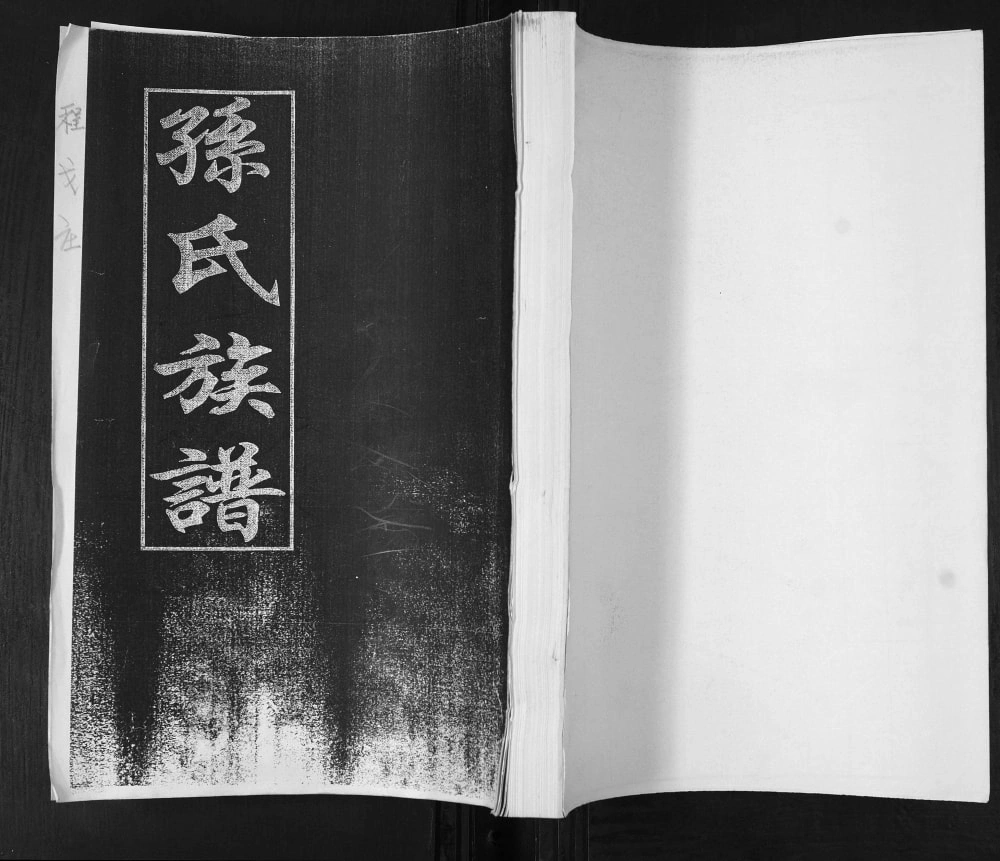 孫氏族譜
程戈庄